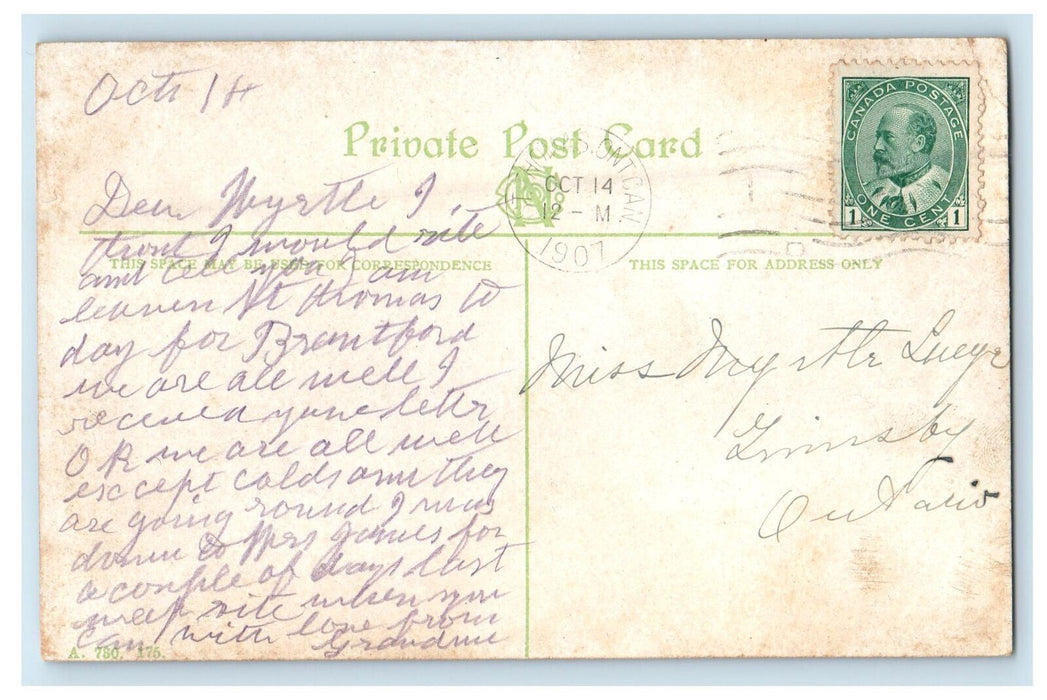 Oct 14
Private Post Card
CANADA POSTAGE
1 ONE CENT 1
S. ONT. CAN.
OCT 14
12 - M
1907
Dear Myrtle I
thout I would rite
THIS SPACE MAY BE USED FOR CORRESPONDENCE
and tell you I am
leaven St thomas to
day for Brantford
we are all well I
received your letter
O K we are all well
except colds and they
are going round I was
down to Mrs James for
a couple of days last
week rite when you
can with love from
Grandma
A. 750. 175.
THIS SPACE FOR ADDRESS ONLY
Miss Myrtle
Grimsby
Ontario